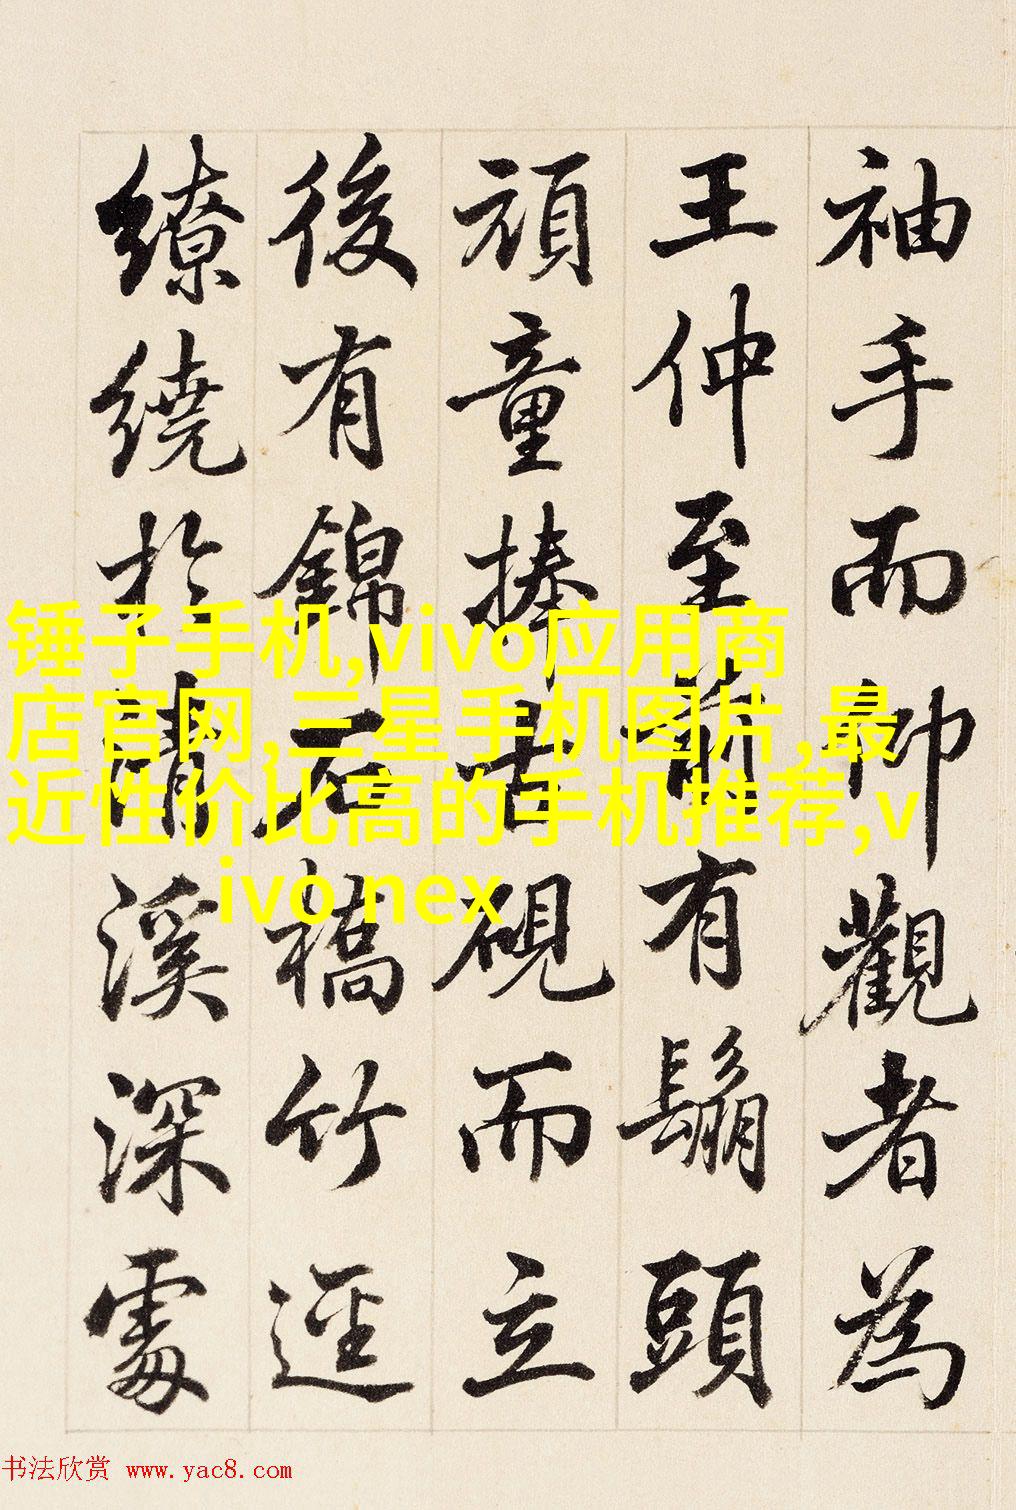 袖手而仰觀者為
王仲至前有鬅頭
頑童捧古硯而立
後有錦石橋竹逕
繚繞於清溪深處
锤子手机,vivo应用商
店官网,三星手机图片,最
近性价比高的手机推荐,v
ivo nex
书法欣赏 www.yac8.com